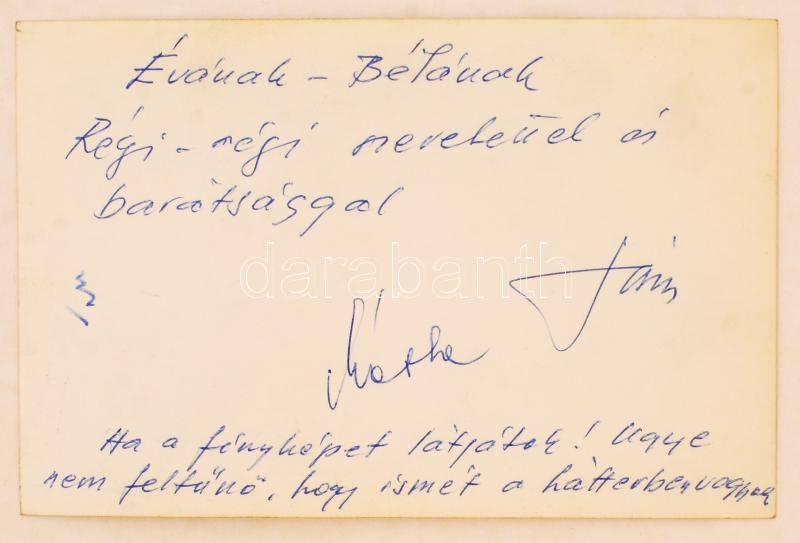 Évának - Bélának
Régi-régi szeretettel és
barátsággal
darabanth
Máthe
Ha a fényképet látjátok! Ugye
nem feltűnő, hogy ismét a háttérben vagyok